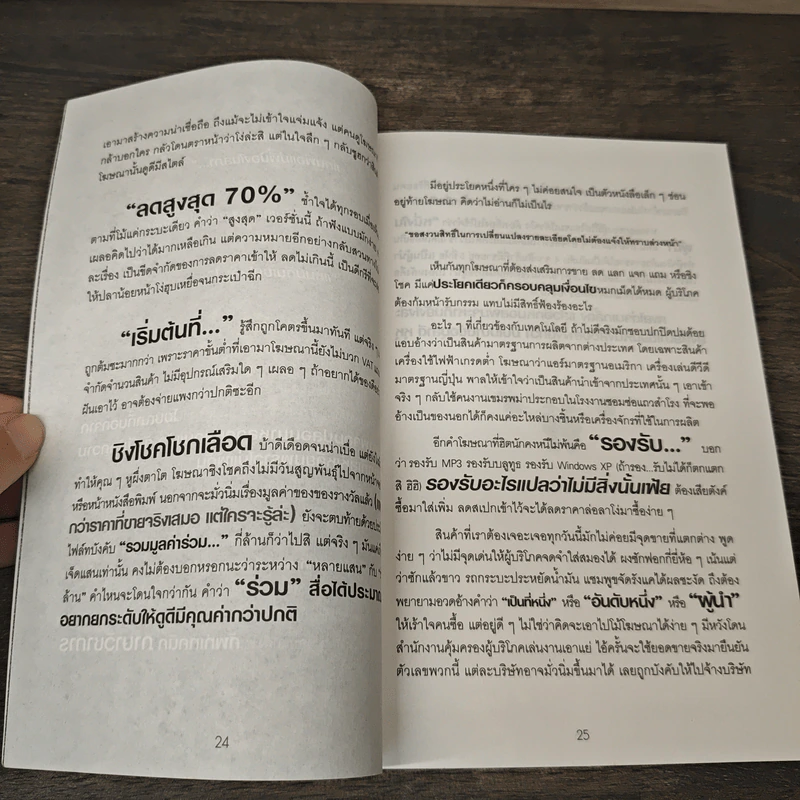 เอามาสร้างความน่าเชื่อถือ ถึงแม้จะไม่เข้าใจแจ่มแจ้ง แต่คนดูโฆษณา
กล้าบอกใคร กลัวโดนตราหน้าว่าโง่ล่ะสิ แต่ในใจลึก ๆ กลับชูยกว่าสิน
โฆษณานั้นดูดีมีสไตล์
“ลดสูงสุด 70%” ช้ำใจได้ทุกรอบเมื่อ
ตามที่ไม้แค่กระบะเดียว คำว่า “สูงสุด” เวอร์ชันนี้ ถ้าฟังแบบมัก
เผลอคิดไปว่าได้มากเหลือเกิน แต่ความหมายอีกอย่างกลับสวนทาง
ละเรื่อง เป็นขีดจำกัดของการลดราคาเข้าให้ ลดไม่เกินนี้ เป็นดีกรี
ให้ปลาน้อยหน้าโง่ฮุบเหยื่อจนกระเป๋าฉีก
“เริ่มต้นที่...” รู้สึกถูกโคตรขึ้นมาทันที แต่จริง ๆ
ถูกต้มซะมากกว่า เพราะราคาขั้นต่ำที่เอามาโฆษณานี้ยังไม่บวก VAT
จำกัดจำนวนสินค้า ไม่มีอุปกรณ์เสริมใด ๆ เผลอ ๆ ถ้าอยากได้ของ
ฝันเอาไว้ อาจต้องจ่ายแพงกว่าปกติซะอีก
ชิงโชคโชกเลือด บ้าดีเดือดจนน่าเบื่อ แต่ยัง
ทำให้คุณ ๆ หูผึ่งตาโต โฆษณาชิงโชคถึงไม่มีวันสูญพันธุ์ไปจากหน้า
หรือหน้าหนังสือพิมพ์ นอกจากจะมั่วนิ่มเรื่องมูลค่าของของรางวัลแล้ว
กว่าราคาที่ขายจริงเสมอ แต่ใครจะรู้ล่ะ) ยังจะตบท้ายด้วย
ไฟล์ทบังคับ “รวมมูลค่าร่วม...” กี่ล้านก็ว่าไปสิ แต่จริง ๆ มัน
เจ็ดแสนเท่านั้น คงไม่ต้องบอกหรอกนะว่าระหว่าง “หลายแสน” กับ
ล้าน” คำไหนจะโดนใจกว่ากัน คำว่า “ร่วม” สื่อได้ประมาณ
อยากยกระดับให้ดูดีมีคุณค่ากว่าปกติ
24
มีอยู่ประโยคหนึ่งที่ใคร ๆ ไม่ค่อยสนใจ เป็นตัวหนังสือเล็ก ๆ ซ่อน
อยู่ท้ายโฆษณา คิดว่าไม่อ่านก็ไม่เป็นไร
“ขอสงวนสิทธิ์ในการเปลี่ยนแปลงรายละเอียดโดยไม่ต้องแจ้งให้ทราบล่วงหน้า”
เห็นกันทุกโฆษณาที่ต้องส่งเสริมการขาย ลด แลก แจก แถม หรือชิง
โชค มีแค่ประโยคเดียวก็ครอบคลุมเงื่อนไขหมกเม็ดได้หมด ผู้บริโภค
ต้องก้มหน้ารับกรรม แทบไม่มีสิทธิ์ฟ้องร้องอะไร
อะไร ๆ ที่เกี่ยวข้องกับเทคโนโลยี ถ้าไม่ดีจริงมักชอบปกปิดปมด้อย
แอบอ้างว่าเป็นสินค้ามาตรฐานการผลิตจากต่างประเทศ โดยเฉพาะสินค้า
เครื่องใช้ไฟฟ้าเกรดต่ำ โฆษณาว่าแอร์มาตรฐานอเมริกา เครื่องเล่นดีวีดี
มาตรฐานญี่ปุ่น พาลให้เข้าใจว่าเป็นสินค้านำเข้าจากประเทศนั้น ๆ เอาเข้า
จริง ๆ กลับใช้คนงานเขมรพม่าประกอบในโรงงานซอมซ่อแถวสำโรง ที่จะพอ
อ้างเป็นของนอกได้ก็คงแค่อะไหล่บางชิ้นหรือเครื่องจักรที่ใช้ในการผลิต
อีกคำโฆษณาที่ฮิตนักคงหนีไม่พ้นคือ “รองรับ...” บอก
ว่า รองรับ MP3 รองรับบลูทูธ รองรับ Windows XP (ถ้ารอง..รับไม่ได้ก็ตกแตก
สิ ฮิฮิ) รองรับอะไรแปลว่าไม่มีสิ่งนั้นเฟ้ย ต้องเสียตังค์
ซื้อมาใส่เพิ่ม ลดสเปกเข้าไว้จะได้ลดราคาล่อลาโง่มาซื้อง่าย ๆ
สินค้าที่เราต้องเจอะเจอทุกวันนี้มักไม่ค่อยมีจุดขายที่แตกต่าง พูด
ง่าย ๆ ว่าไม่มีจุดเด่นให้ผู้บริโภคจดจำใส่สมองได้ ผงซักฟอกกี่ยี่ห้อ ๆ เน้นแต่
ว่าซักแล้วขาว รถกระบะประหยัดน้ำมัน แชมพูขจัดรังแคได้ผลชะงัด ถึงต้อง
พยายามอวดอ้างคำว่า “เป็นที่หนึ่ง” หรือ “อันดับหนึ่ง” หรือ “ผู้นำ”
ให้เร้าใจคนซื้อ แต่อยู่ดี ๆ ไม่ใช่ว่าคิดจะเอาไปโม้โฆษณาได้ง่าย ๆ มีหวังโดน
สำนักงานคุ้มครองผู้บริโภคเล่นงานเอาแย่ ไอ้ครั้นจะใช้ยอดขายจริงมายืนยัน
ตัวเลขพวกนี้ แต่ละบริษัทอาจมั่วนิ่มขึ้นมาได้ เลยถูกบังคับให้ไปจ้างบริษัท
25